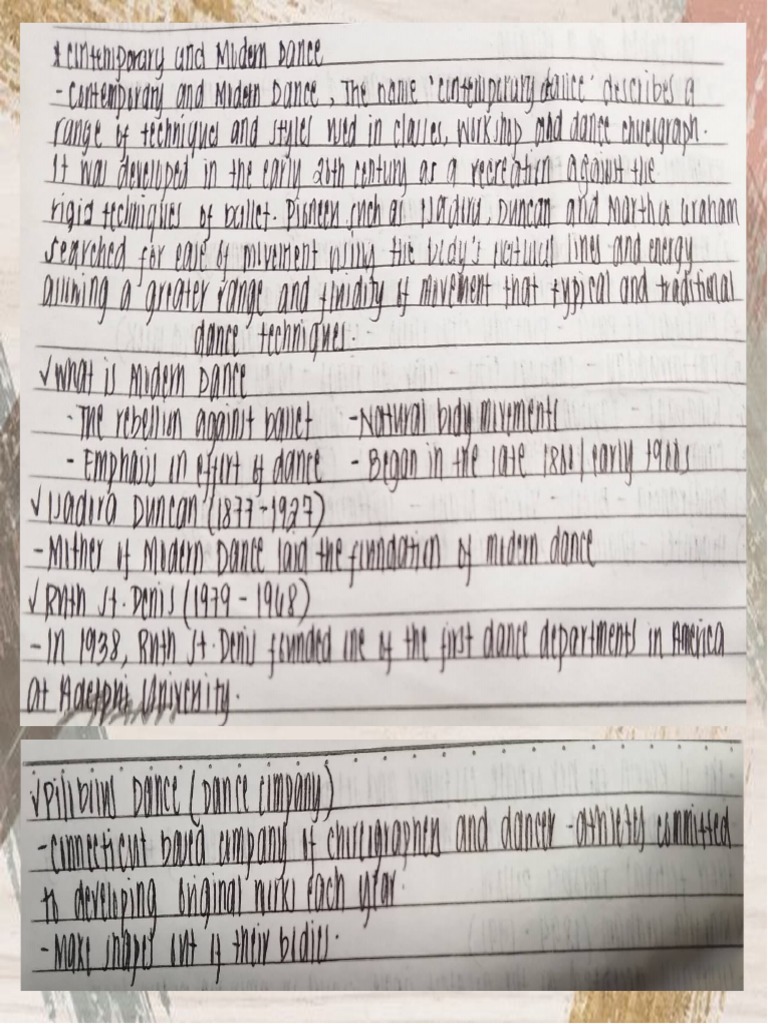 * Contemporary and Modern Dance
- Contemporary and Modern Dance, The name "contemporary dance" describes a
range of techniques and styles used in classes, workshop and dance choreograph.
It was developed in the early 20th century as a recreation against the
rigid techniques of ballet. Pioneers such as Isadora, Duncan and Martha Graham
searched for ease of movement using the body's natural lines and energy
alluming a greater range and fluidity of movement that typical and traditional
dance techniques.
✓ What is Modern Dance
- The rebellion against ballet - Natural body movements
- Emphasis on effort of dance - Began in the late 1800/early 1900s
✓ Isadora Duncan (1877-1927)
- Mother of Modern Dance laid the foundation of modern dance
✓ Ruth St. Denis (1979 - 1968)
- In 1938, Ruth St. Denis founded one of the first dance departments in America
at Adelphi University.
✓ Pilibius Dance (Dance Company)
- Connecticut based company of choreographers and dancer - athletes committed
to developing original works each year.
- Make shapes out of their bodies.